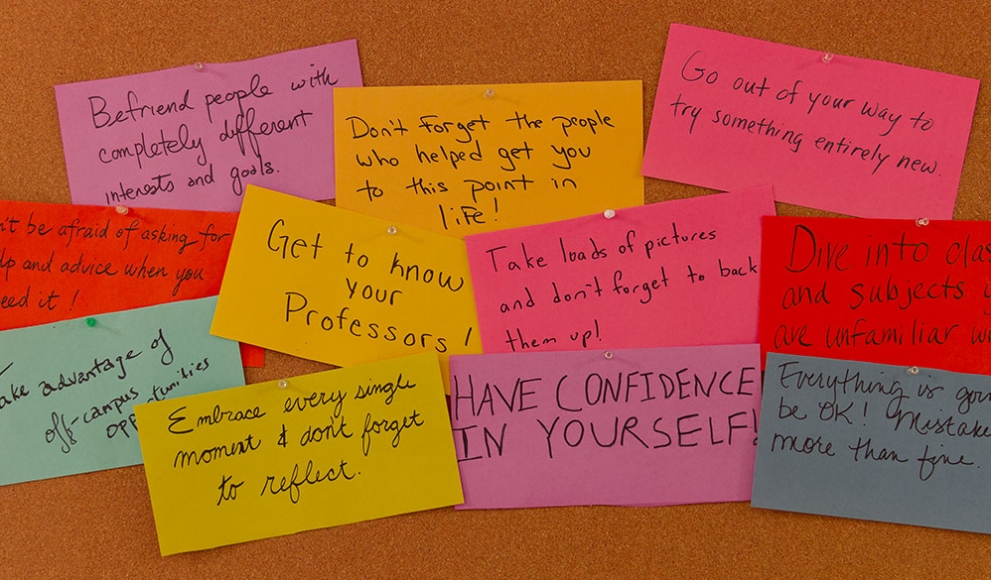 Befriend people with
completely different
interests and goals.
Don't forget the people
who helped get you
to this point in
life!
Go out of your way to
try something entirely new.
n't be afraid of asking for
lp and advice when you
eed it!
Get to know
your
Professors!
Take loads of pictures
and don't forget to back
them up!
Dive into clas
and subjects y
are unfamiliar wi
ake advantage of
off-campus
opportunities
Embrace every single
moment & don't forget
to reflect.
HAVE CONFIDENCE
IN YOURSELF!
Everything is goin
be OK! Mistake
more than fine.